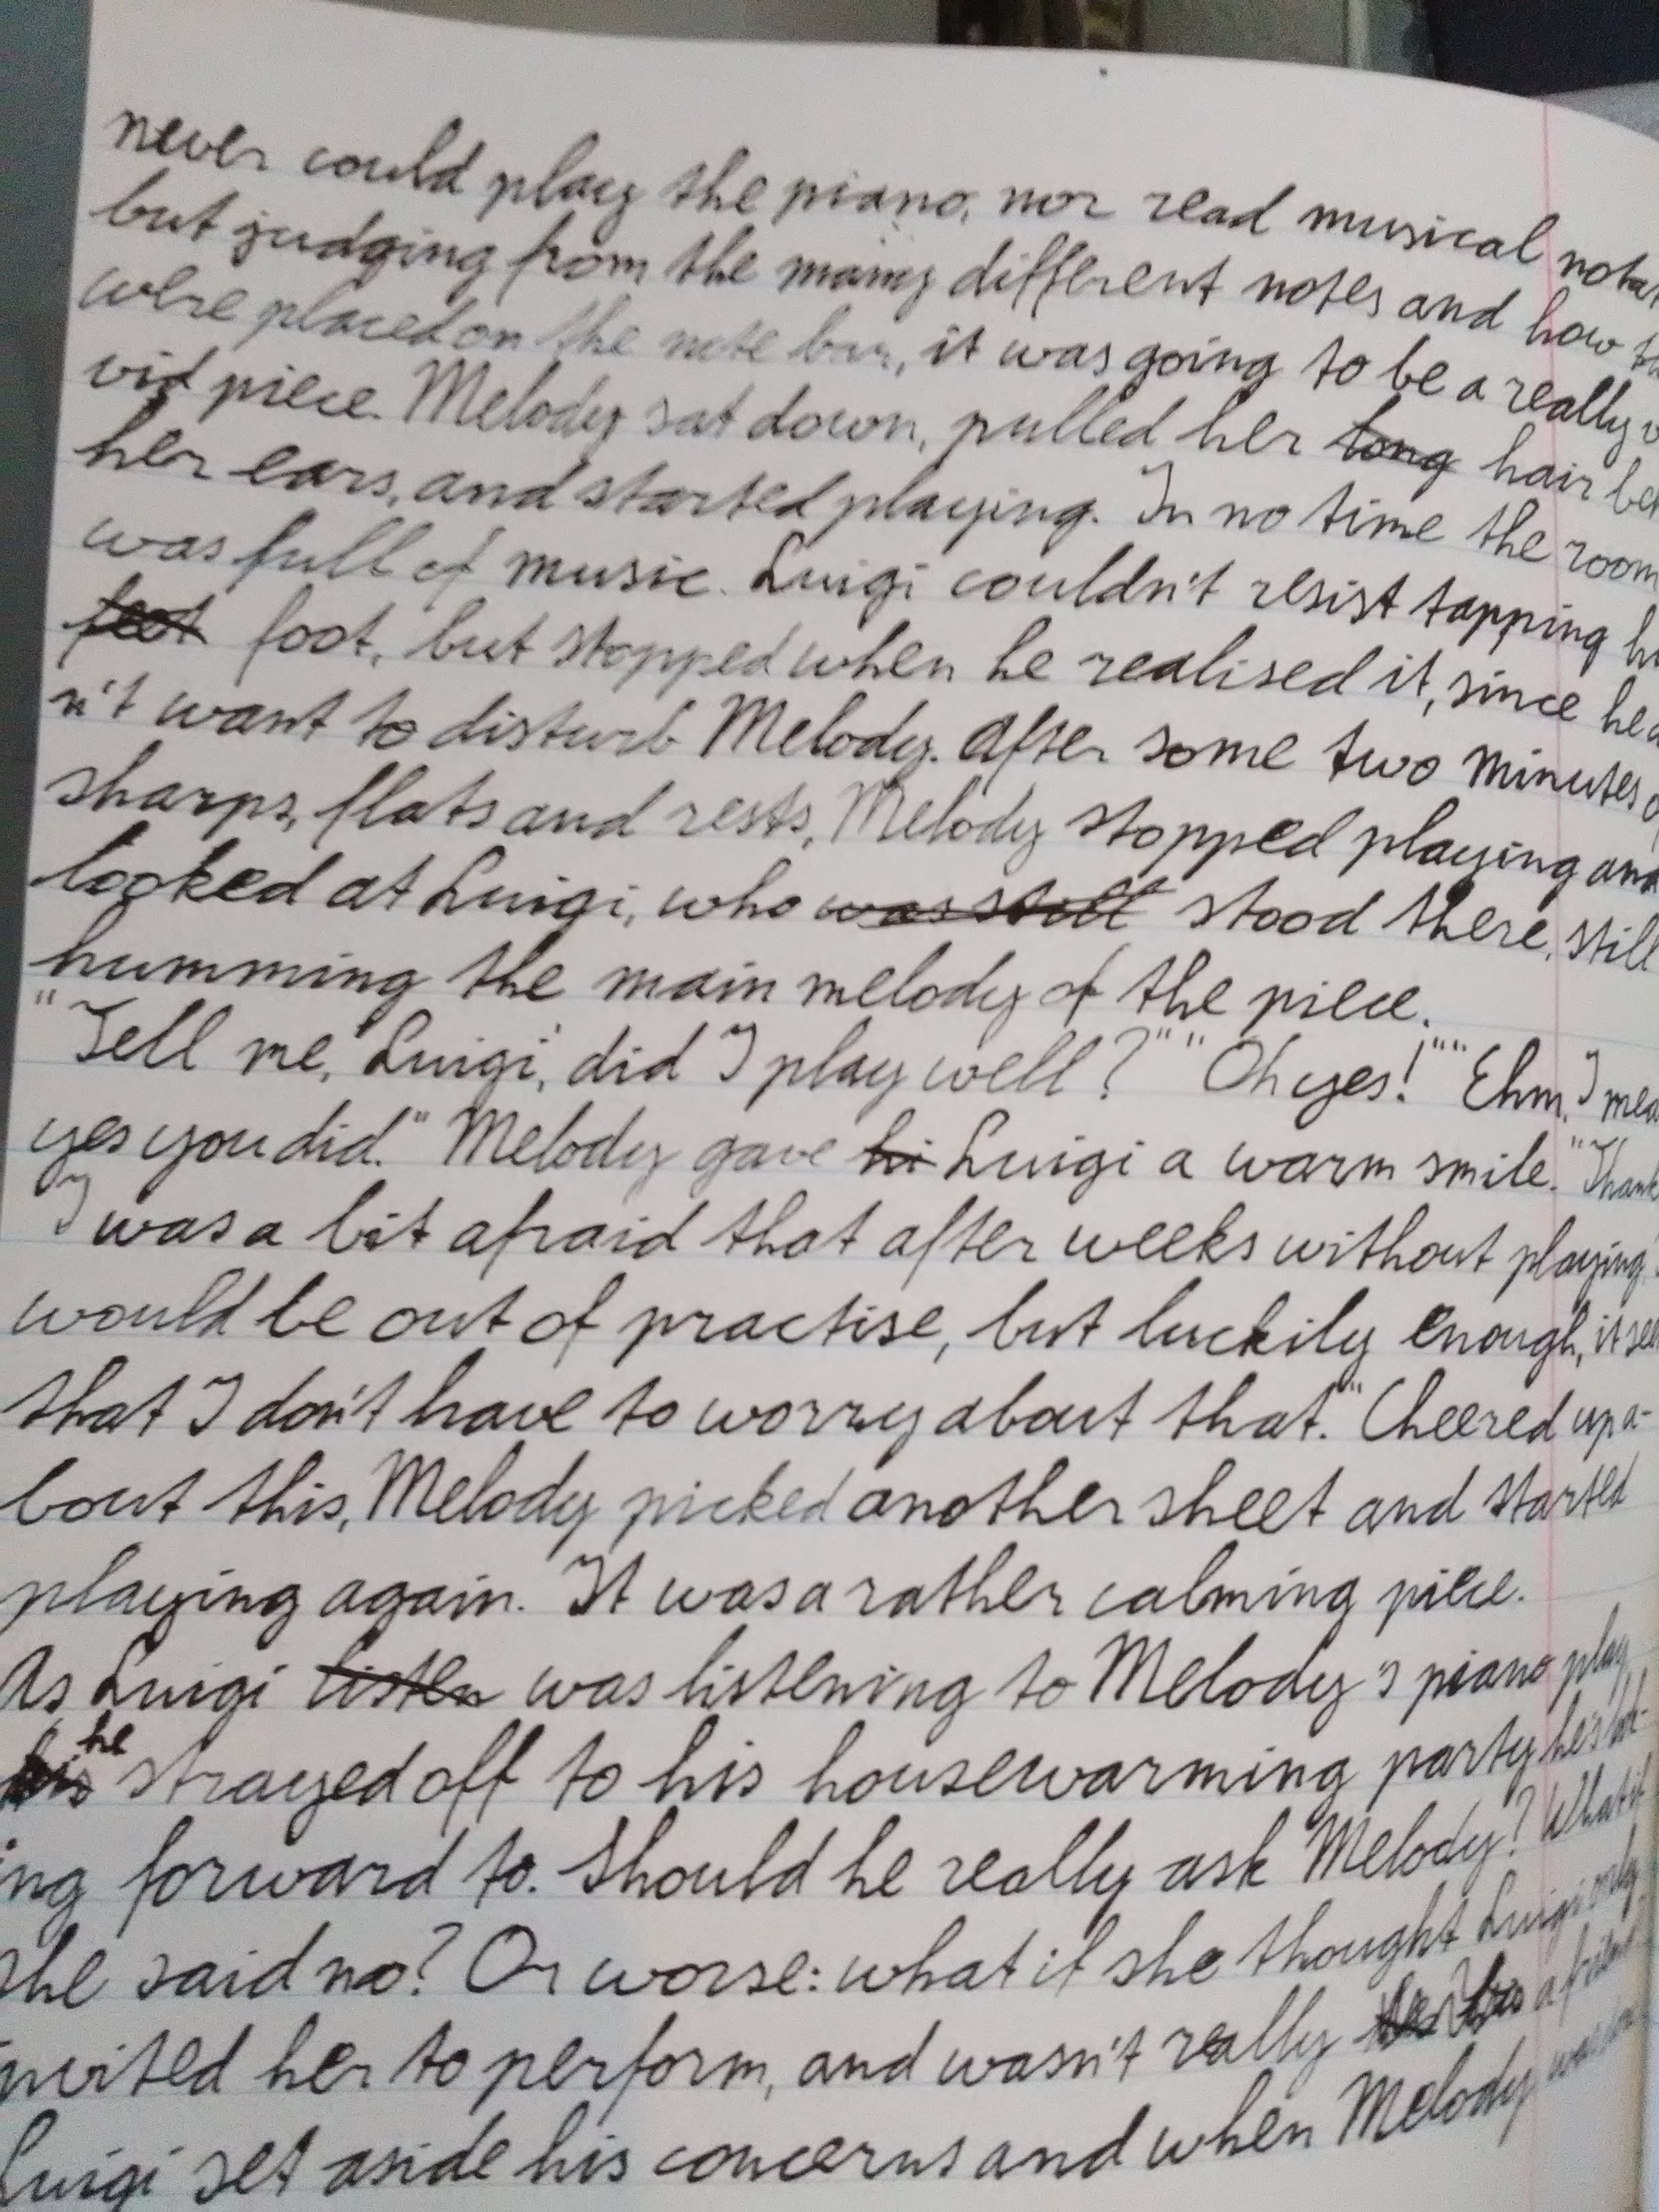 never could play the piano, nor read musical notat
but judging from the many different notes and how th
were placed on the note bar, it was going to be a really v
vid piece. Melody sat down, pulled her long hair be
her ears, and started playing. In no time the room
was full of music. Luigi couldn't resist tapping hi
feet foot, but stopped when he realised it, since he d
n't want to disturb Melody. After some two minutes o
sharps, flats and rests, Melody stopped playing and
looked at Luigi, who was still stood there, still
humming the main melody of the piece.
"Tell me, Luigi, did I play well?" "Oh yes!" "Ehm, I mea
yes you did." Melody gave hi Luigi a warm smile. "Thank
I was a bit afraid that after weeks without playing
would be out of practise, but luckily enough, it see
that I don't have to worry about that." Cheered up a-
bout this, Melody picked another sheet and started
playing again. It was a rather calming piece.
As Luigi listen was listening to Melody's piano play
his he strayed off to his housewarming party he's look-
ing forward to. Should he really ask Melody? What if
she said no? Or worse: what if she thought Luigi only
invited her to perform, and wasn't really a friend
Luigi set aside his concerns and when Melody was